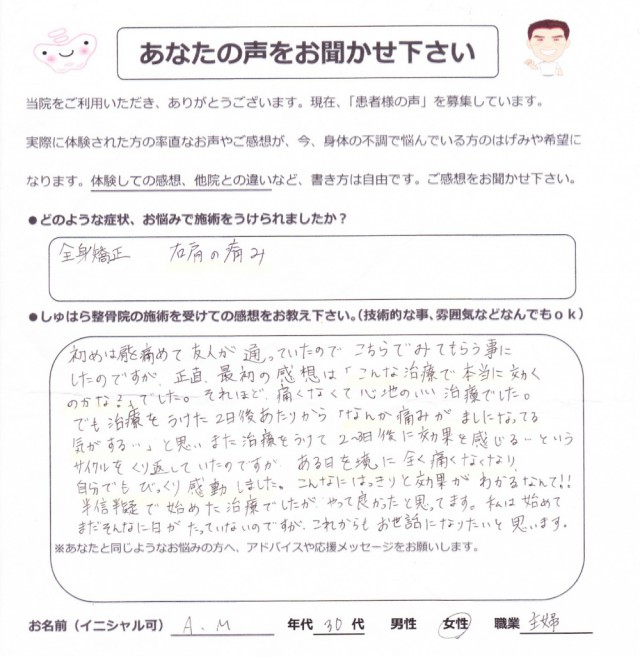 あなたの声をお聞かせ下さい
当院をご利用いただき、ありがとうございます。現在、「患者様の声」を募集しています。
実際に体験された方の率直なお声やご感想が、今、身体の不調で悩んでいる方のはげみや希望に
なります。体験しての感想、他院との違いなど、書き方は自由です。ご感想をお聞かせ下さい。
●どのような症状、お悩みで施術をうけられましたか？
全身矯正　右肩の痛み
●しゅはら整骨院の施術を受けての感想をお教え下さい。（技術的な事、雰囲気などなんでもｏｋ）
初めは肩を痛めて友人が通っていたのでこちらでみてもらう事に
したのですが、正直、最初の感想は「こんな治療で本当に効く
のかなぁ」でした。それほど、痛くなくて心地のいい治療でした。
でも治療をうけた2日後あたりから「なんか痛みがましになってる
気がする…」と思いまた治療をうけて2〜3日後に効果を感じる…という
サイクルをくり返していたのですが、ある日を境に全く痛くなくなり、
自分でもびっくり感動しました。こんなにはっきりと効果がわかるなんて!!
半信半疑で始めた治療でしたが、やって良かったと思ってます。私は始めて
まだそんなに日がたっていないのですが、これからもお世話になりたいと思います。
※あなたと同じようなお悩みの方へ、アドバイスや応援メッセージをお願いします。
お名前（イニシャル可） A．M 年代 30 代 男性 女性 職業 主婦